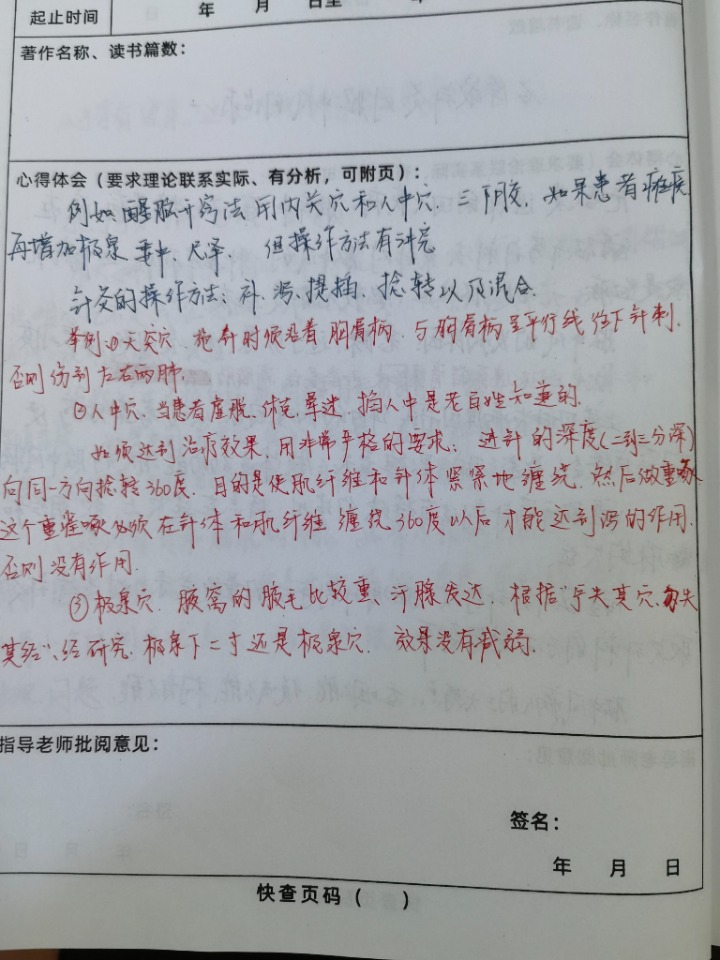 起止时间 年 月 日至 年
著作名称、读书篇数：
心得体会（要求理论联系实际、有分析，可附页）：
例如醒脑开窍法用内关穴和人中穴、三阴交，如果患者瘫痪
再增加极泉、委中、尺泽 但操作方法有讲究
针灸的操作方法：补、泻、提插、捻转以及混合
举例①天突穴 施针时候沿着胸骨柄 与胸骨柄呈平行线往下针刺.
否则伤到左右两肺.
②人中穴、当患者虚脱、休克、晕迷、掐人中是老百姓知道的.
如须达到治疗效果，用非常严格的要求： 进针的深度（二到三分深）
向同一方向捻转360度. 目的是使肌纤维和针体紧紧地缠绕. 然后做重啄
这个重雀啄必须在针体和肌纤维缠绕360度以后才能达到泻的作用.
否则没有作用.
③极泉穴. 腋窝的腋毛比较重、汗腺发达、根据“宁失其穴、勿失
其经”、经研究. 极泉下二寸还是极泉穴. 效果没有减弱.
指导老师批阅意见：
签名：
年 月 日
快查页码（ ）